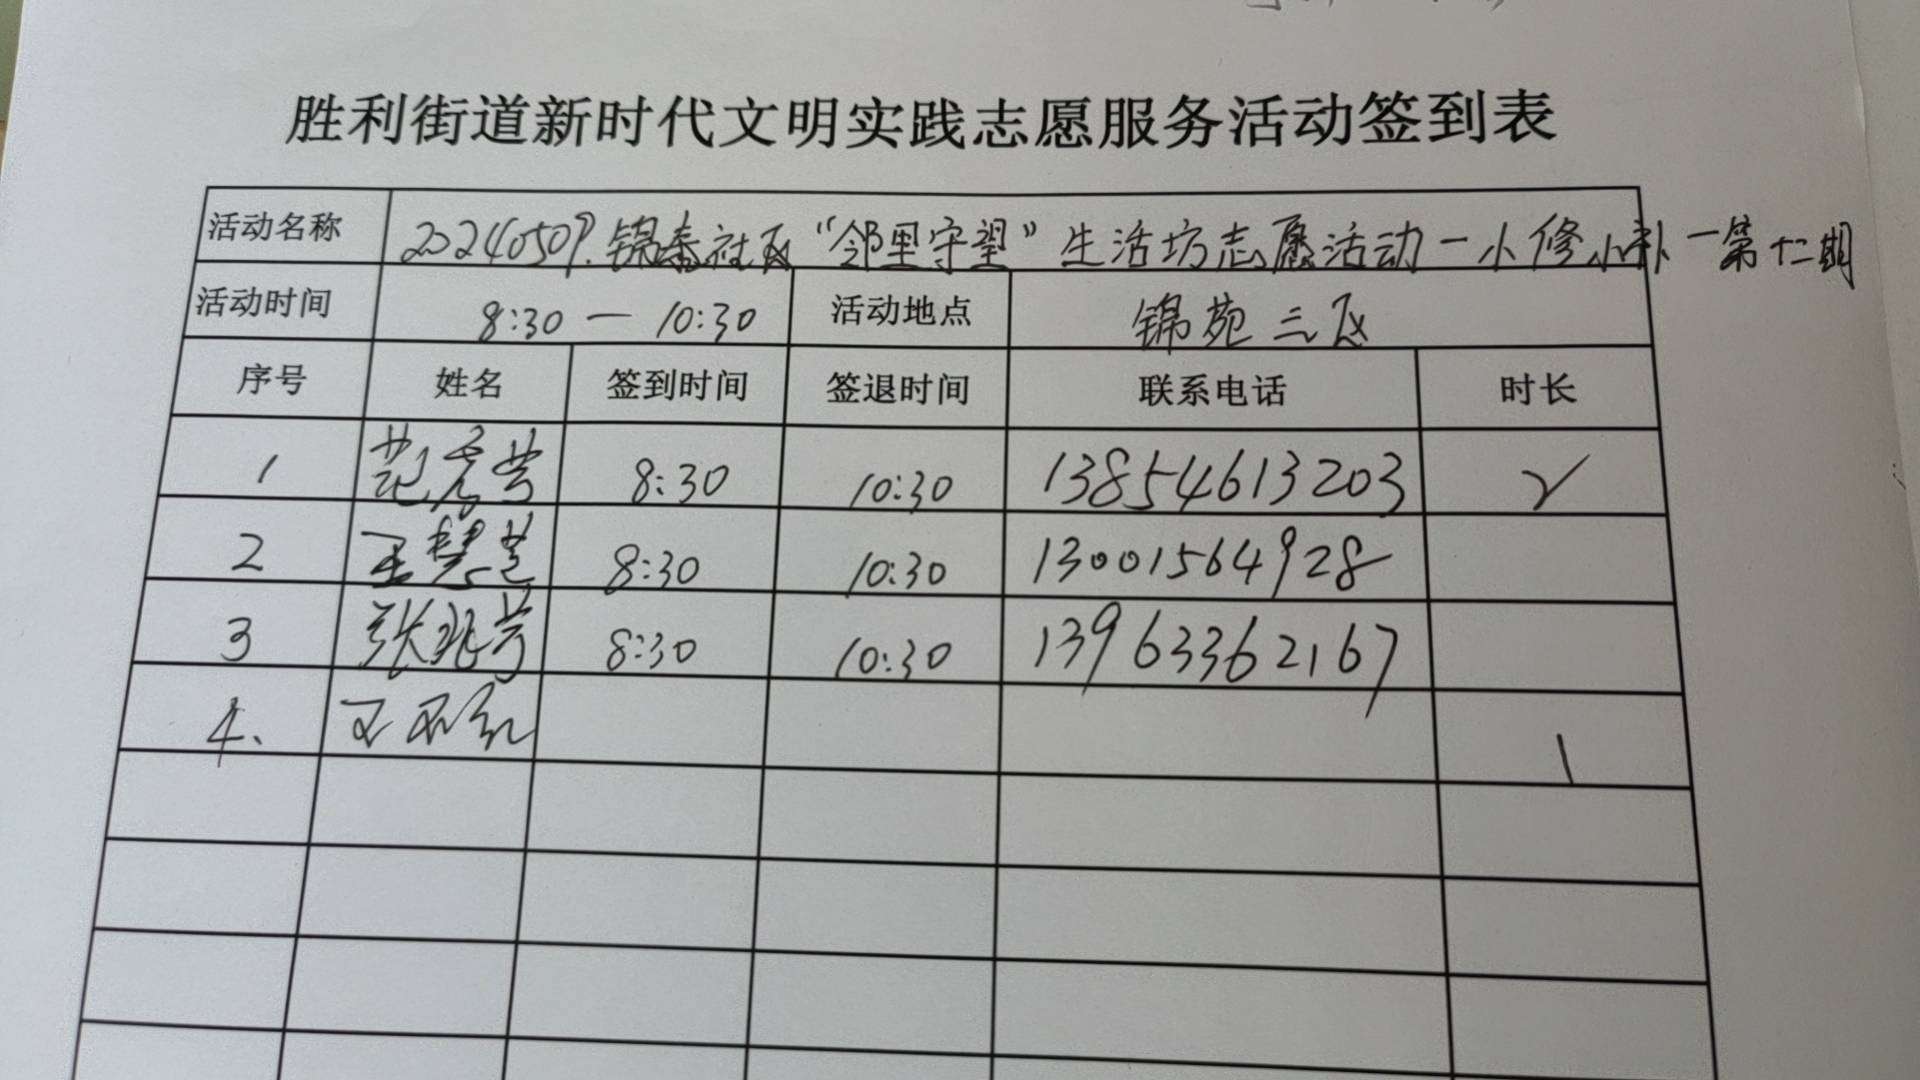 胜利街道新时代文明实践志愿服务活动签到表
活动名称 20240509.锦春社区“邻里守望”生活坊志愿活动一小修小补一第十二期
活动时间 8:30 — 10:30 活动地点 锦苑三区
序号 姓名 签到时间 签退时间 联系电话 时长
1 8:30 10:30 13854613203 2
2 王慧芝 8:30 10:30 13001564928
3 张兆芳 8:30 10:30 13963362167
4、 王